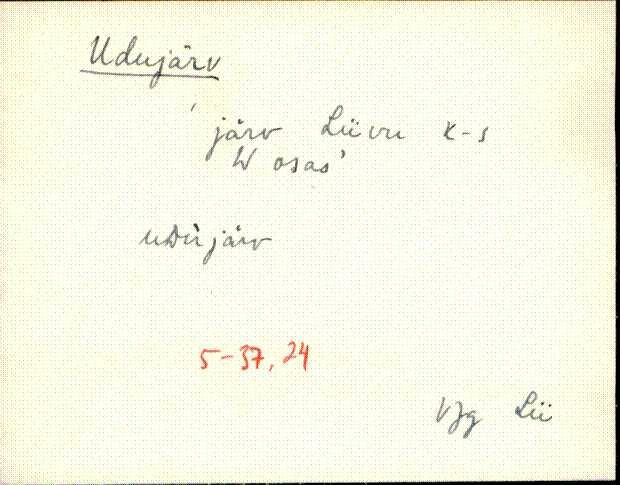 Udujärv
'järv Liivu k-s
W osas'
uDùjärv
5-37, 24
VJg Lii